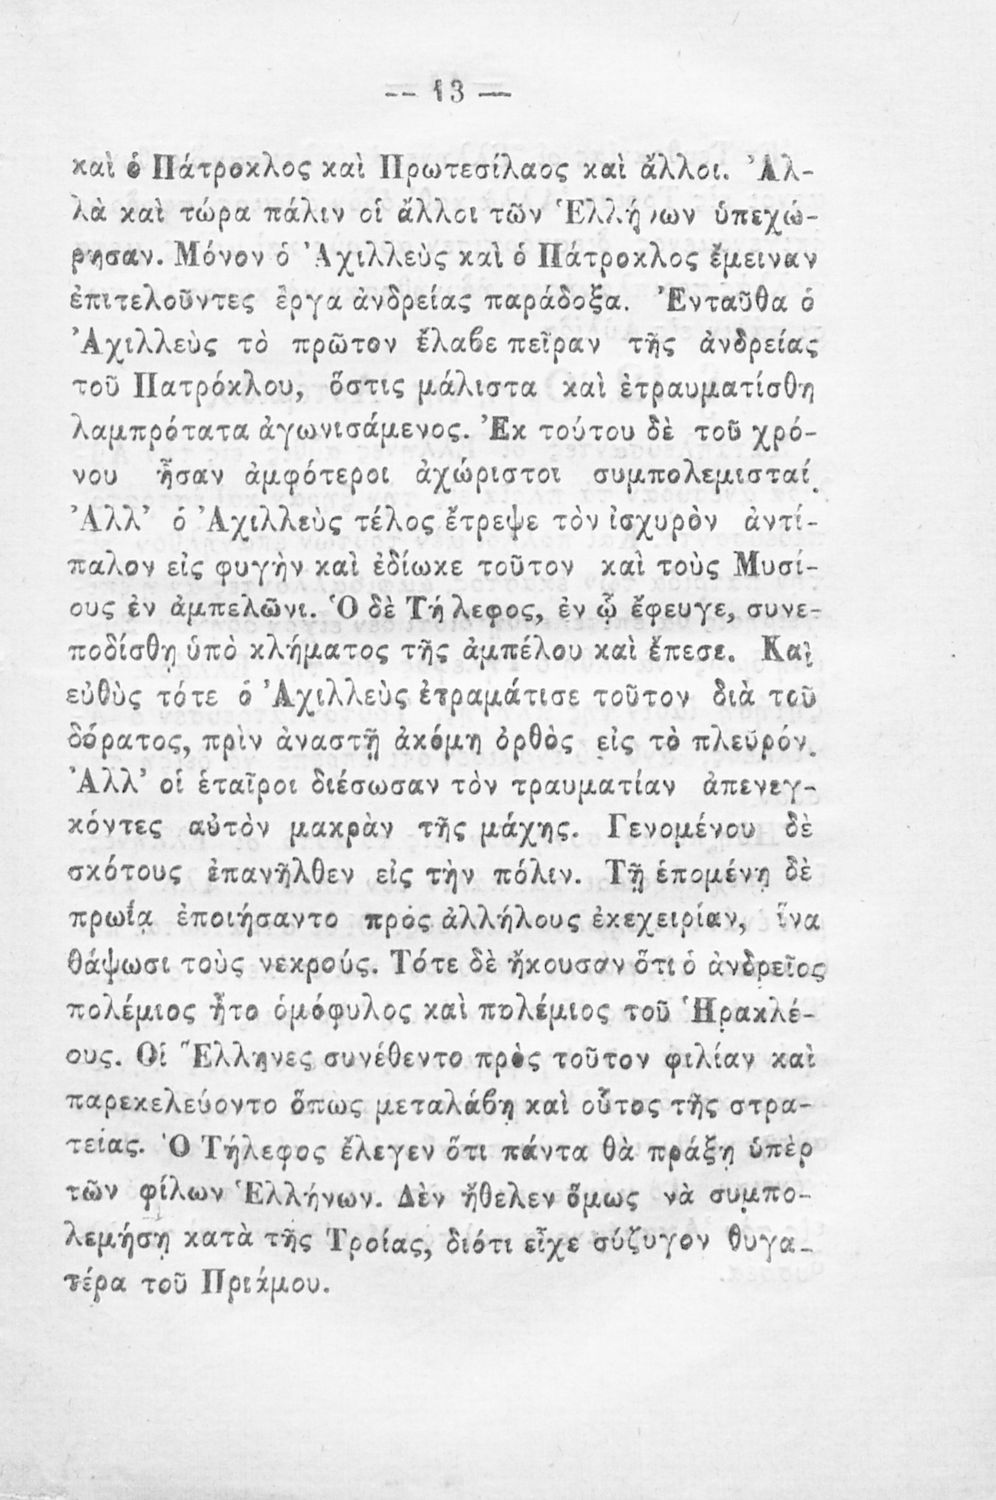 -- 13 —
καὶ ὁ Πάτροκλος καὶ Πρωτεσίλαος καὶ ἄλλοι. Ἀλ-
λὰ καὶ τώρα πάλιν οἱ ἄλλοι τῶν Ἑλλήνων ὑπεχώ-
ρησαν. Μόνον ὁ Ἀχιλλεὺς καὶ ὁ Πάτροκλος ἔμειναν
ἐπιτελοῦντες ἔργα ἀνδρείας παράδοξα. Ἐνταῦθα ὁ
Ἀχιλλεὺς τὸ πρῶτον ἔλαβε πεῖραν τῆς ἀνδρείας
τοῦ Πατρόκλου, ὅστις μάλιστα καὶ ἐτραυματίσθη
λαμπρότατα ἀγωνισάμενος. Ἐκ τούτου δὲ τοῦ χρό-
νου ἦσαν ἀμφότεροι ἀχώριστοι συμπολεμισταί.
Ἀλλ’ ὁ Ἀχιλλεὺς τέλος ἔτρεψε τὸν ἰσχυρὸν ἀντί-
παλον εἰς φυγὴν καὶ ἐδίωκε τοῦτον καὶ τοὺς Μυσί-
ους ἐν ἀμπελῶνι. Ὁ δὲ Τήλεφος, ἐν ᾧ ἔφευγε, συνε-
ποδίσθη ὑπὸ κλήματος τῆς ἀμπέλου καὶ ἔπεσε. Καὶ
εὐθὺς τότε ὁ Ἀχιλλεὺς ἐτραμάτισε τοῦτον διὰ τοῦ
δόρατος, πρὶν ἀναστῇ ἀκόμη ὀρθὸς εἰς τὸ πλευρόν.
Ἀλλ’ οἱ ἑταῖροι διέσωσαν τὸν τραυματίαν ἀπενεγ-
κόντες αὐτὸν μακρὰν τῆς μάχης. Γενομένου δὲ
σκότους ἐπανῆλθεν εἰς τὴν πόλιν. Τῇ ἑπομένῃ δὲ
πρωΐᾳ ἐποιήσαντο πρὸς ἀλλήλους ἐκεχειρίαν, ἵνα
θάψωσι τοὺς νεκρούς. Τότε δὲ ἤκουσαν ὅτι ὁ ἀνδρεῖος
πολέμιος ἦτο ὁμόφυλος καὶ πολέμιος τοῦ Ἡρακλέ-
ους. Οἱ Ἕλληνες συνέθεντο πρὸς τοῦτον φιλίαν καὶ
παρεκελεύοντο ὅπως μεταλάβῃ καὶ οὗτος τῆς στρα-
τείας. Ὁ Τήλεφος ἔλεγεν ὅτι πάντα θὰ πράξῃ ὑπὲρ
τῶν φίλων Ἑλλήνων. Δὲν ἤθελεν ὅμως νὰ συμπο-
λεμήσῃ κατὰ τῆς Τροίας, διότι εἶχε σύζυγον θυγα-
τέρα τοῦ Πριάμου.